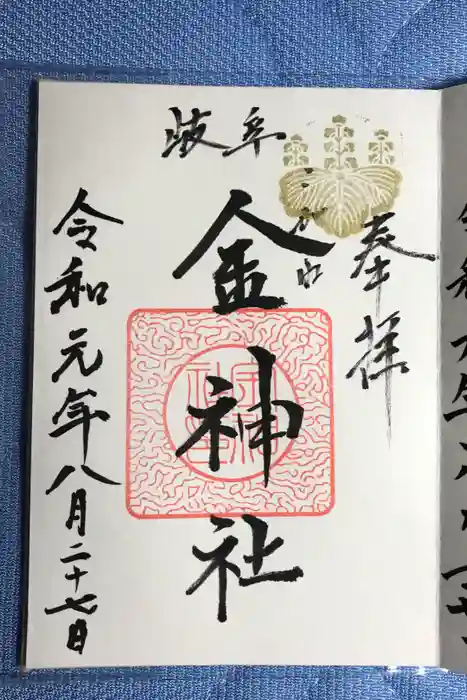 奉拝
岐阜
こがね
金神社
令和元年八月二十七日